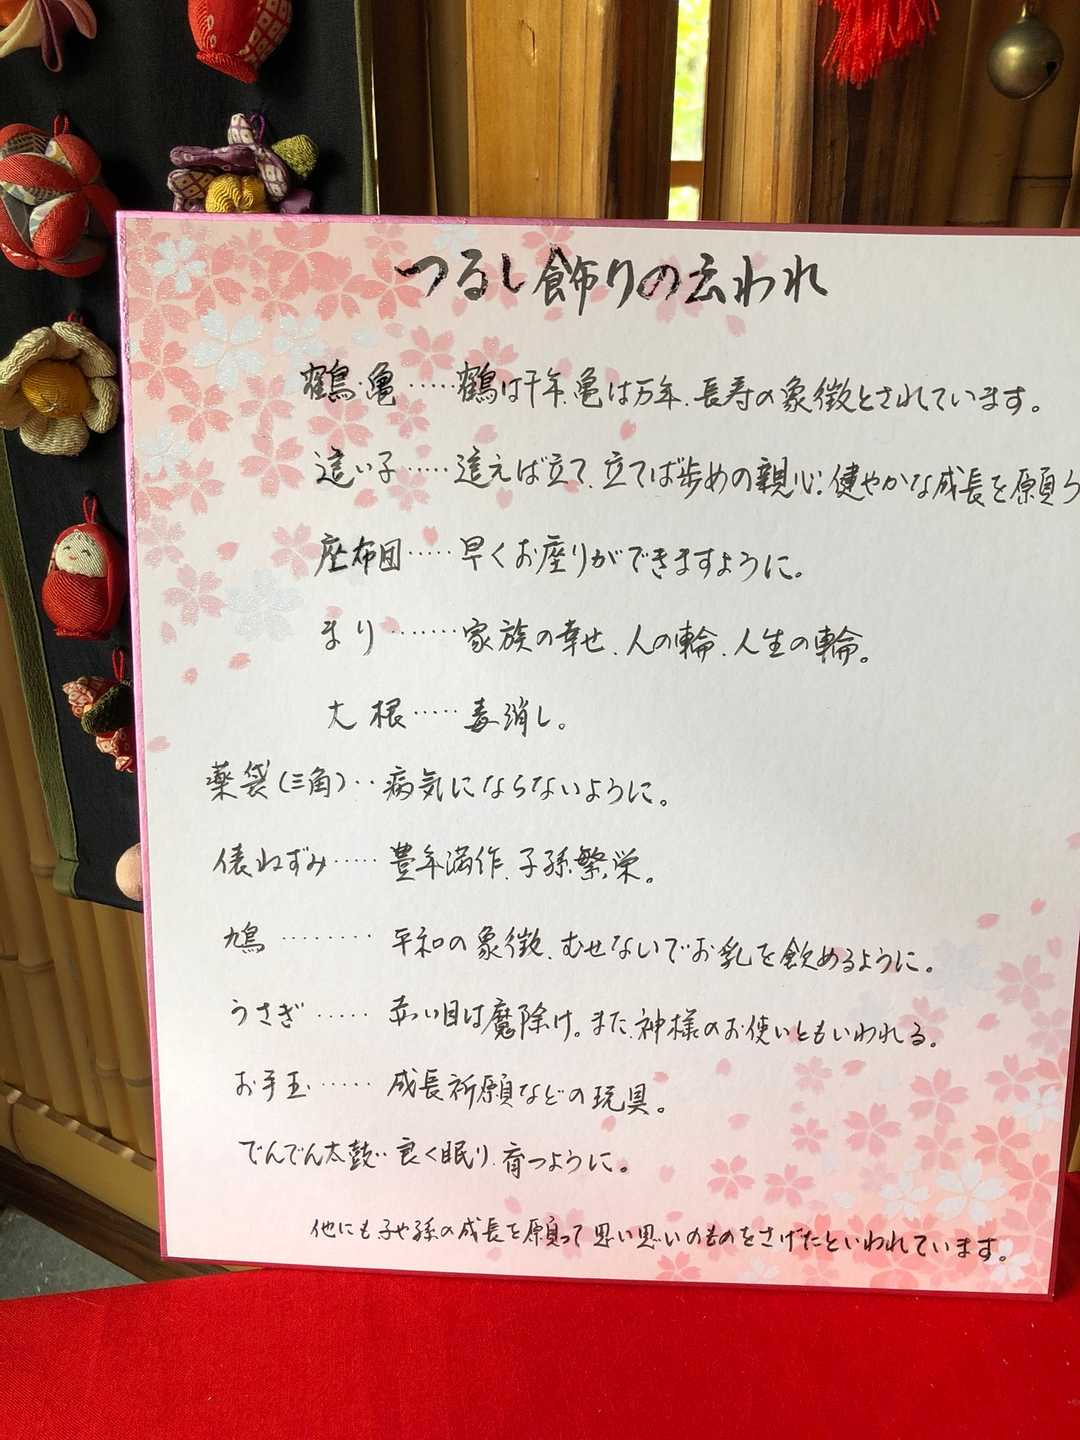 つるし飾りの云われ
鶴・亀‥‥‥鶴は千年、亀は万年、長寿の象徴とされています。
這い子‥‥‥這えば立て、立てば歩めの親心。健やかな成長を願う
座布団‥‥‥早くお座りができますように。
まり‥‥‥‥家族の幸せ、人の輪、人生の輪。
大根‥‥‥毒消し。
薬袋(三角)‥病気にならないように。
俵ねずみ‥‥‥豊年満作、子孫繁栄。
鳩‥‥‥‥平和の象徴、むせないでお乳を飲めるように。
うさぎ‥‥‥赤い目は魔除け。また、神様のお使いともいわれる。
お手玉‥‥‥成長祈願などの玩具。
でんでん太鼓‥良く眠り、育つように。
他にも子や孫の成長を願って思い思いのものをさげたといわれています。